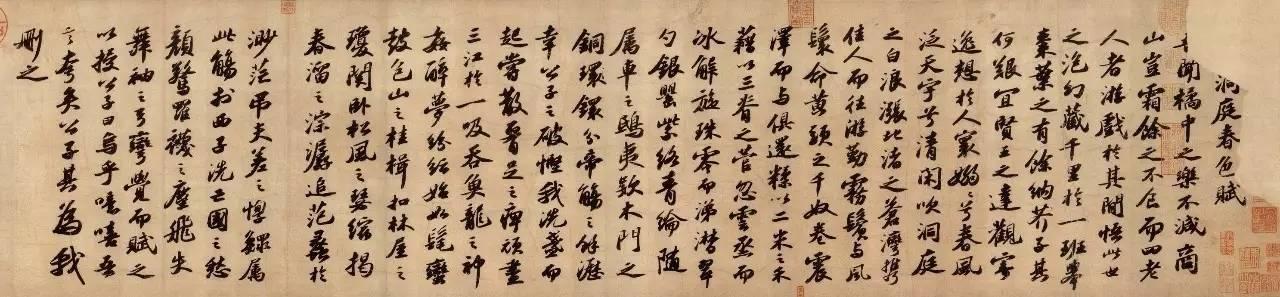 洞庭春色賦
聞橘中之樂不減商
山豈霜餘之不食而四老
人者游戲於其間悟此世
之泡幻藏千里於一班舉
棗葉之有餘納芥子其
何艱宜賢王之達觀寄
逸想於人寰嫋嫋兮春風
泛天宇兮清閑吹洞庭
之白浪漲北渚之蒼灣攜
佳人而往游勒霧鬢與風
鬟命黃頭之千奴卷震
澤而與俱還糅以二米之禾
藉以三脊之菅忽雲蒸而
冰解旋珠零而涕潸翠
勺銀罌紫絡青綸隨
屬車之鴟夷款木門之
銅鐶鐶分帝觴之餘瀝
幸公子之破慳我洗盞而
起嘗散腰足之痹頑盡
三江於一吸吞魚龍之神
姦醉夢紛紜始如髦蠻
鼓包山之桂楫扣林屋之
瓊關臥松風之瑟縮揭
春溜之淙潺追范蠡於
渺茫弔夫差之惸鰥屬
此觴於西子洗亡國之愁
顏驚羅襪之塵飛失
舞袖之弓彎覺而賦之
以授公子曰烏乎噫嘻吾
言夸矣公子其為我
刪之